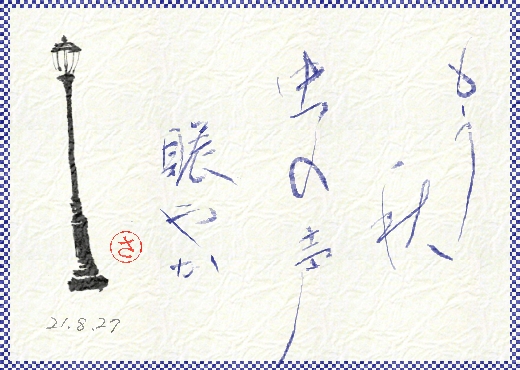 もう
秋
虫の声
賑やか
さ
21.8.27